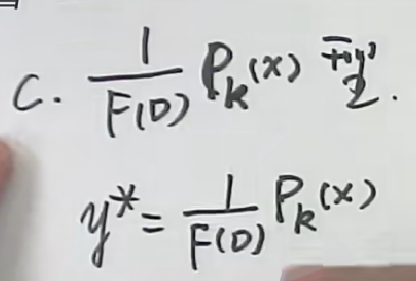 C. \frac{1}{F(D)} P_k(x) 型.
y^* = \frac{1}{F(D)} P_k(x)